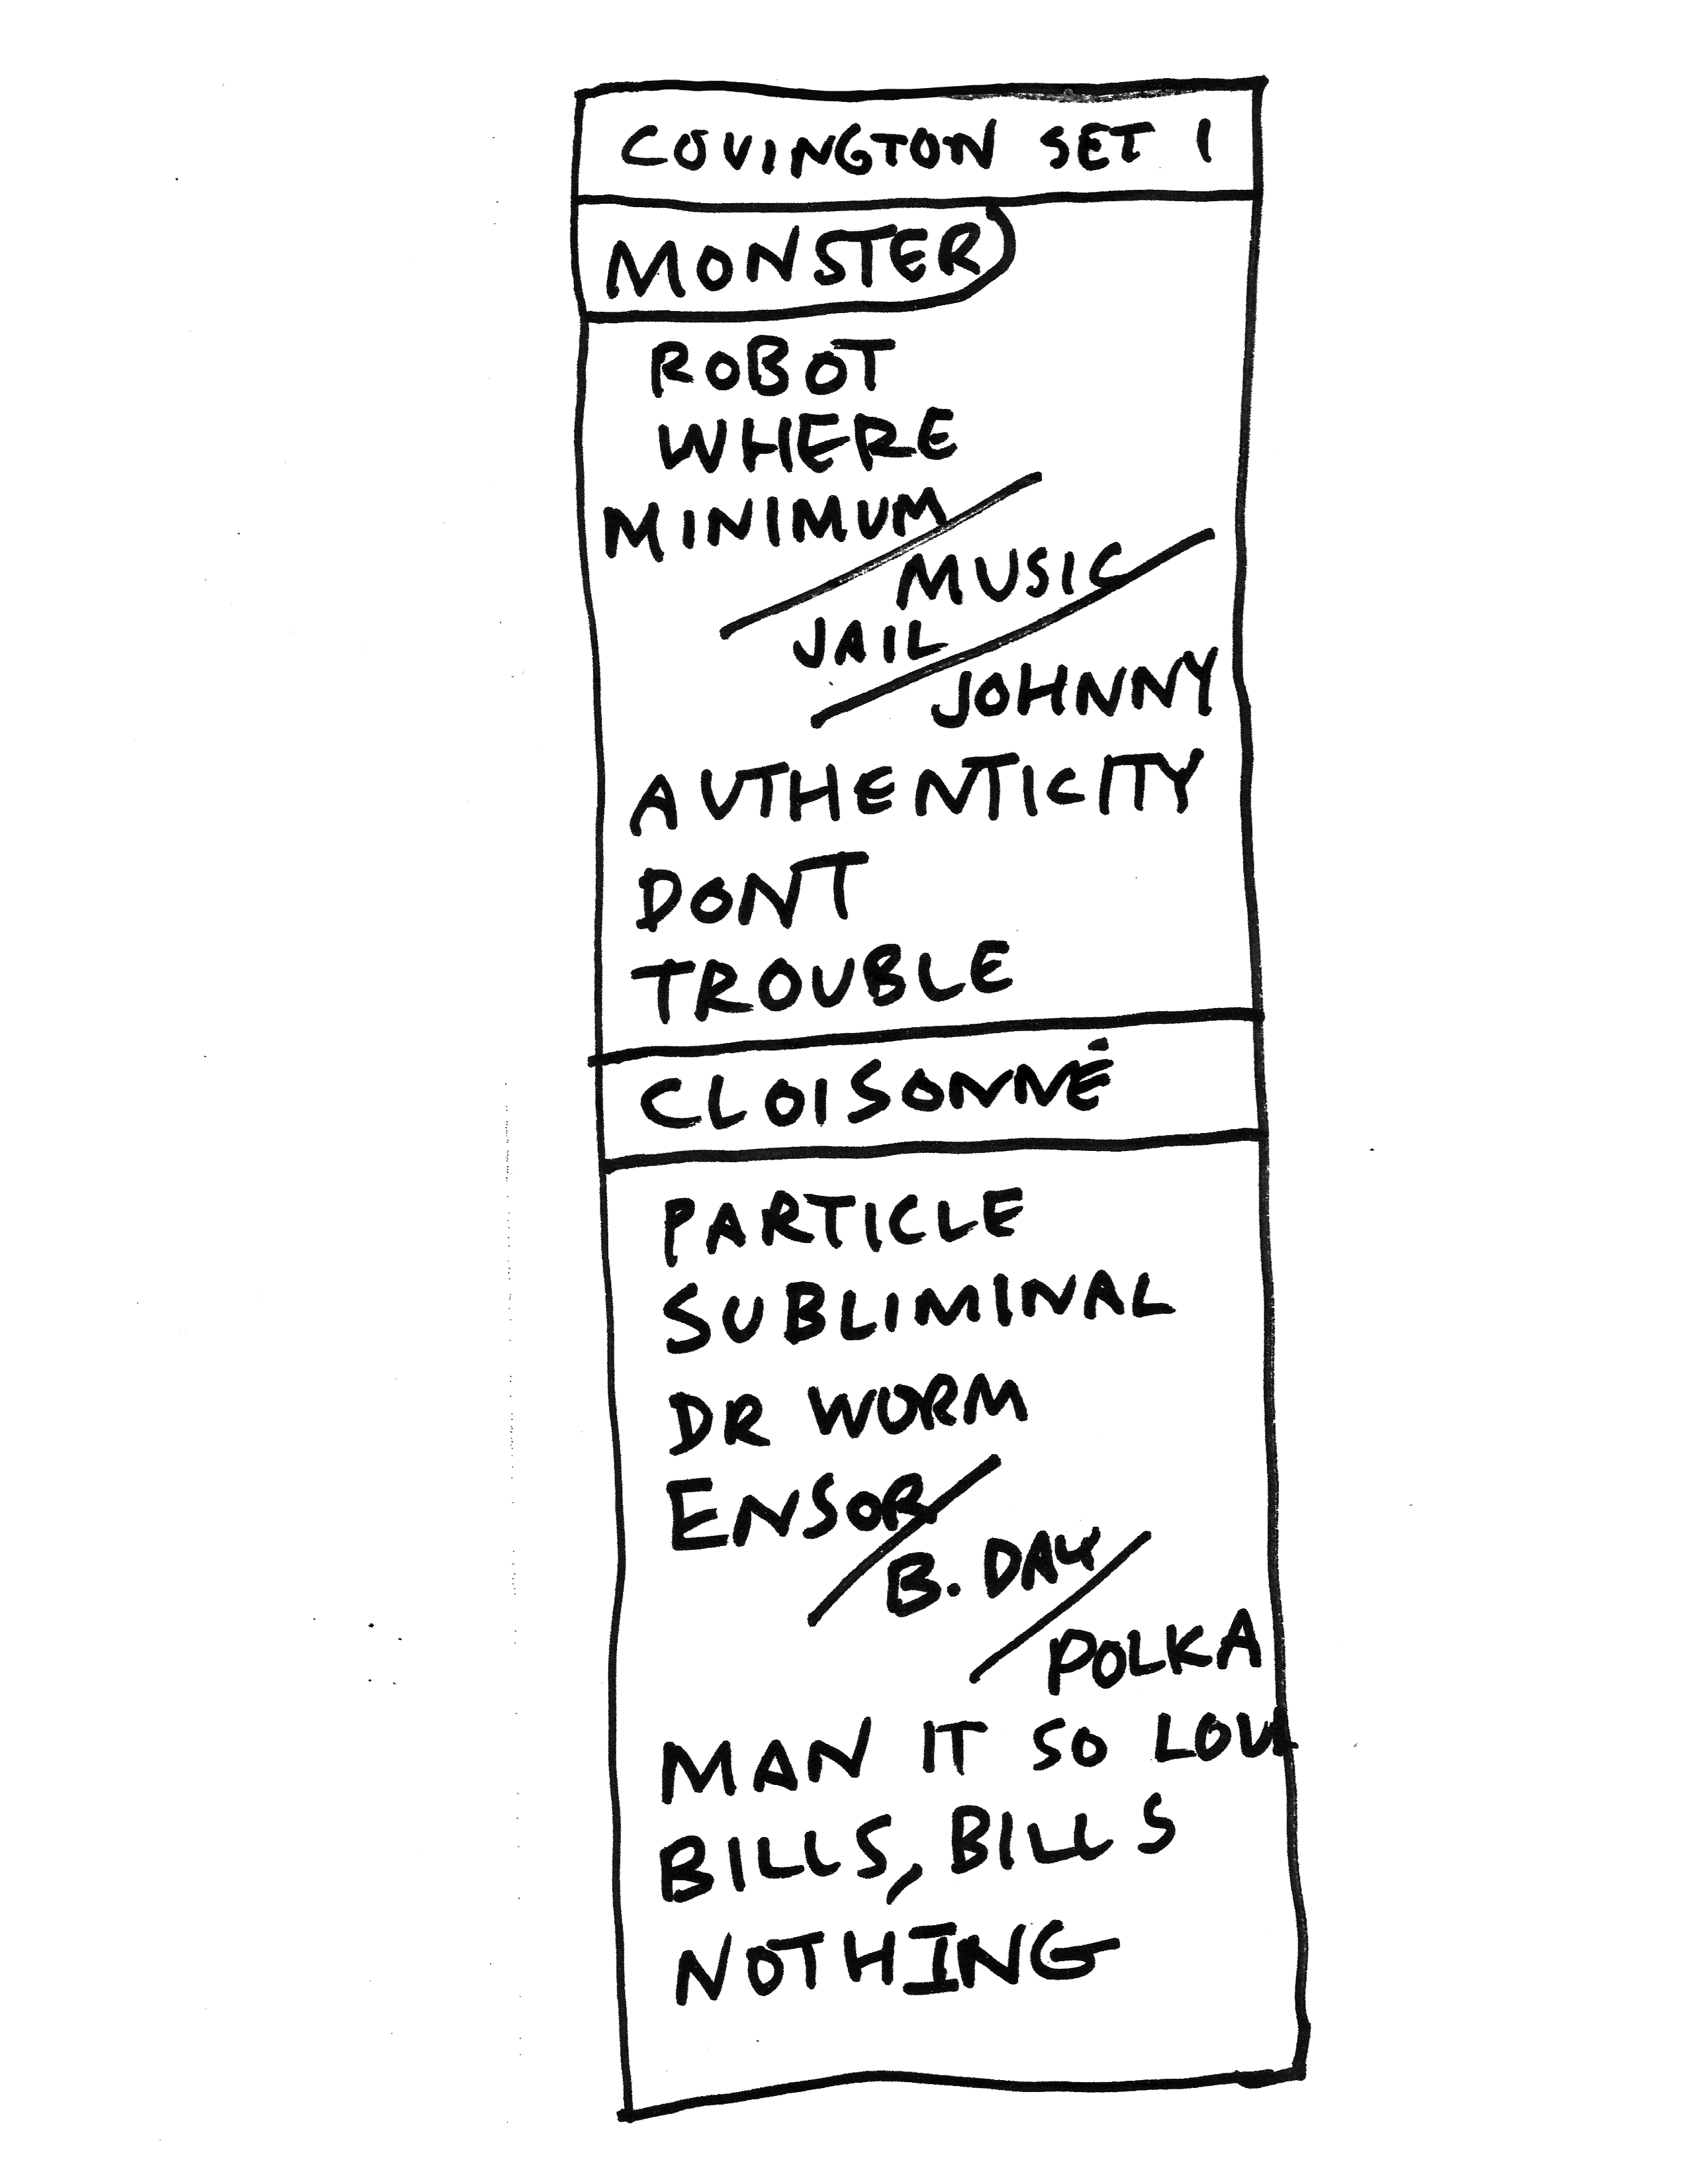 COVINGTON SET 1
MONSTER
ROBOT
WHERE
MINIMUM
MUSIC
JAIL
JOHNNY
AUTHENTICITY
DONT
TROUBLE
CLOISONNÉ
PARTICLE
SUBLIMINAL
DR WORM
ENSOR
B. DAY
POLKA
MAN IT SO LOUD
BILLS, BILLS
NOTHING